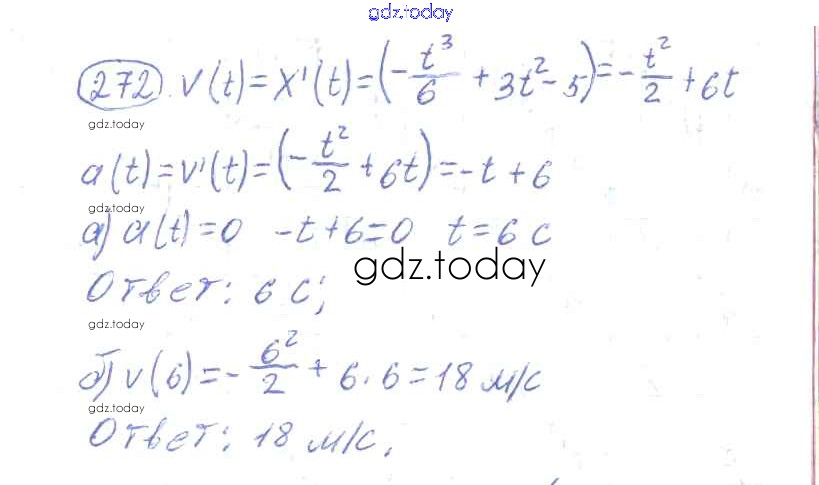 gdz.today
272. v(t) = x'(t) = (-t³/6 + 3t² - 5) = -t²/2 + 6t
gdz.today
a(t) = v'(t) = (-t²/2 + 6t) = -t + 6
gdz.today
а) a(t) = 0 -t + 6 = 0 t = 6 с
gdz.today
Ответ: 6 с;
gdz.today
б) v(6) = -6²/2 + 6·6 = 18 м/с
gdz.today
Ответ: 18 м/с.